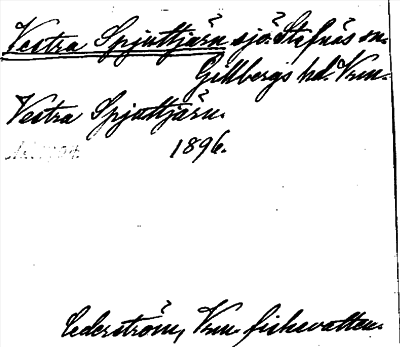 Vestra Spjuttjärn sjö: Stafnäs sn.
Gillbergs hd. Vrm.
Vestra Spjuttjärn.
1896.
Cederström, Vrm. fiskevatten.